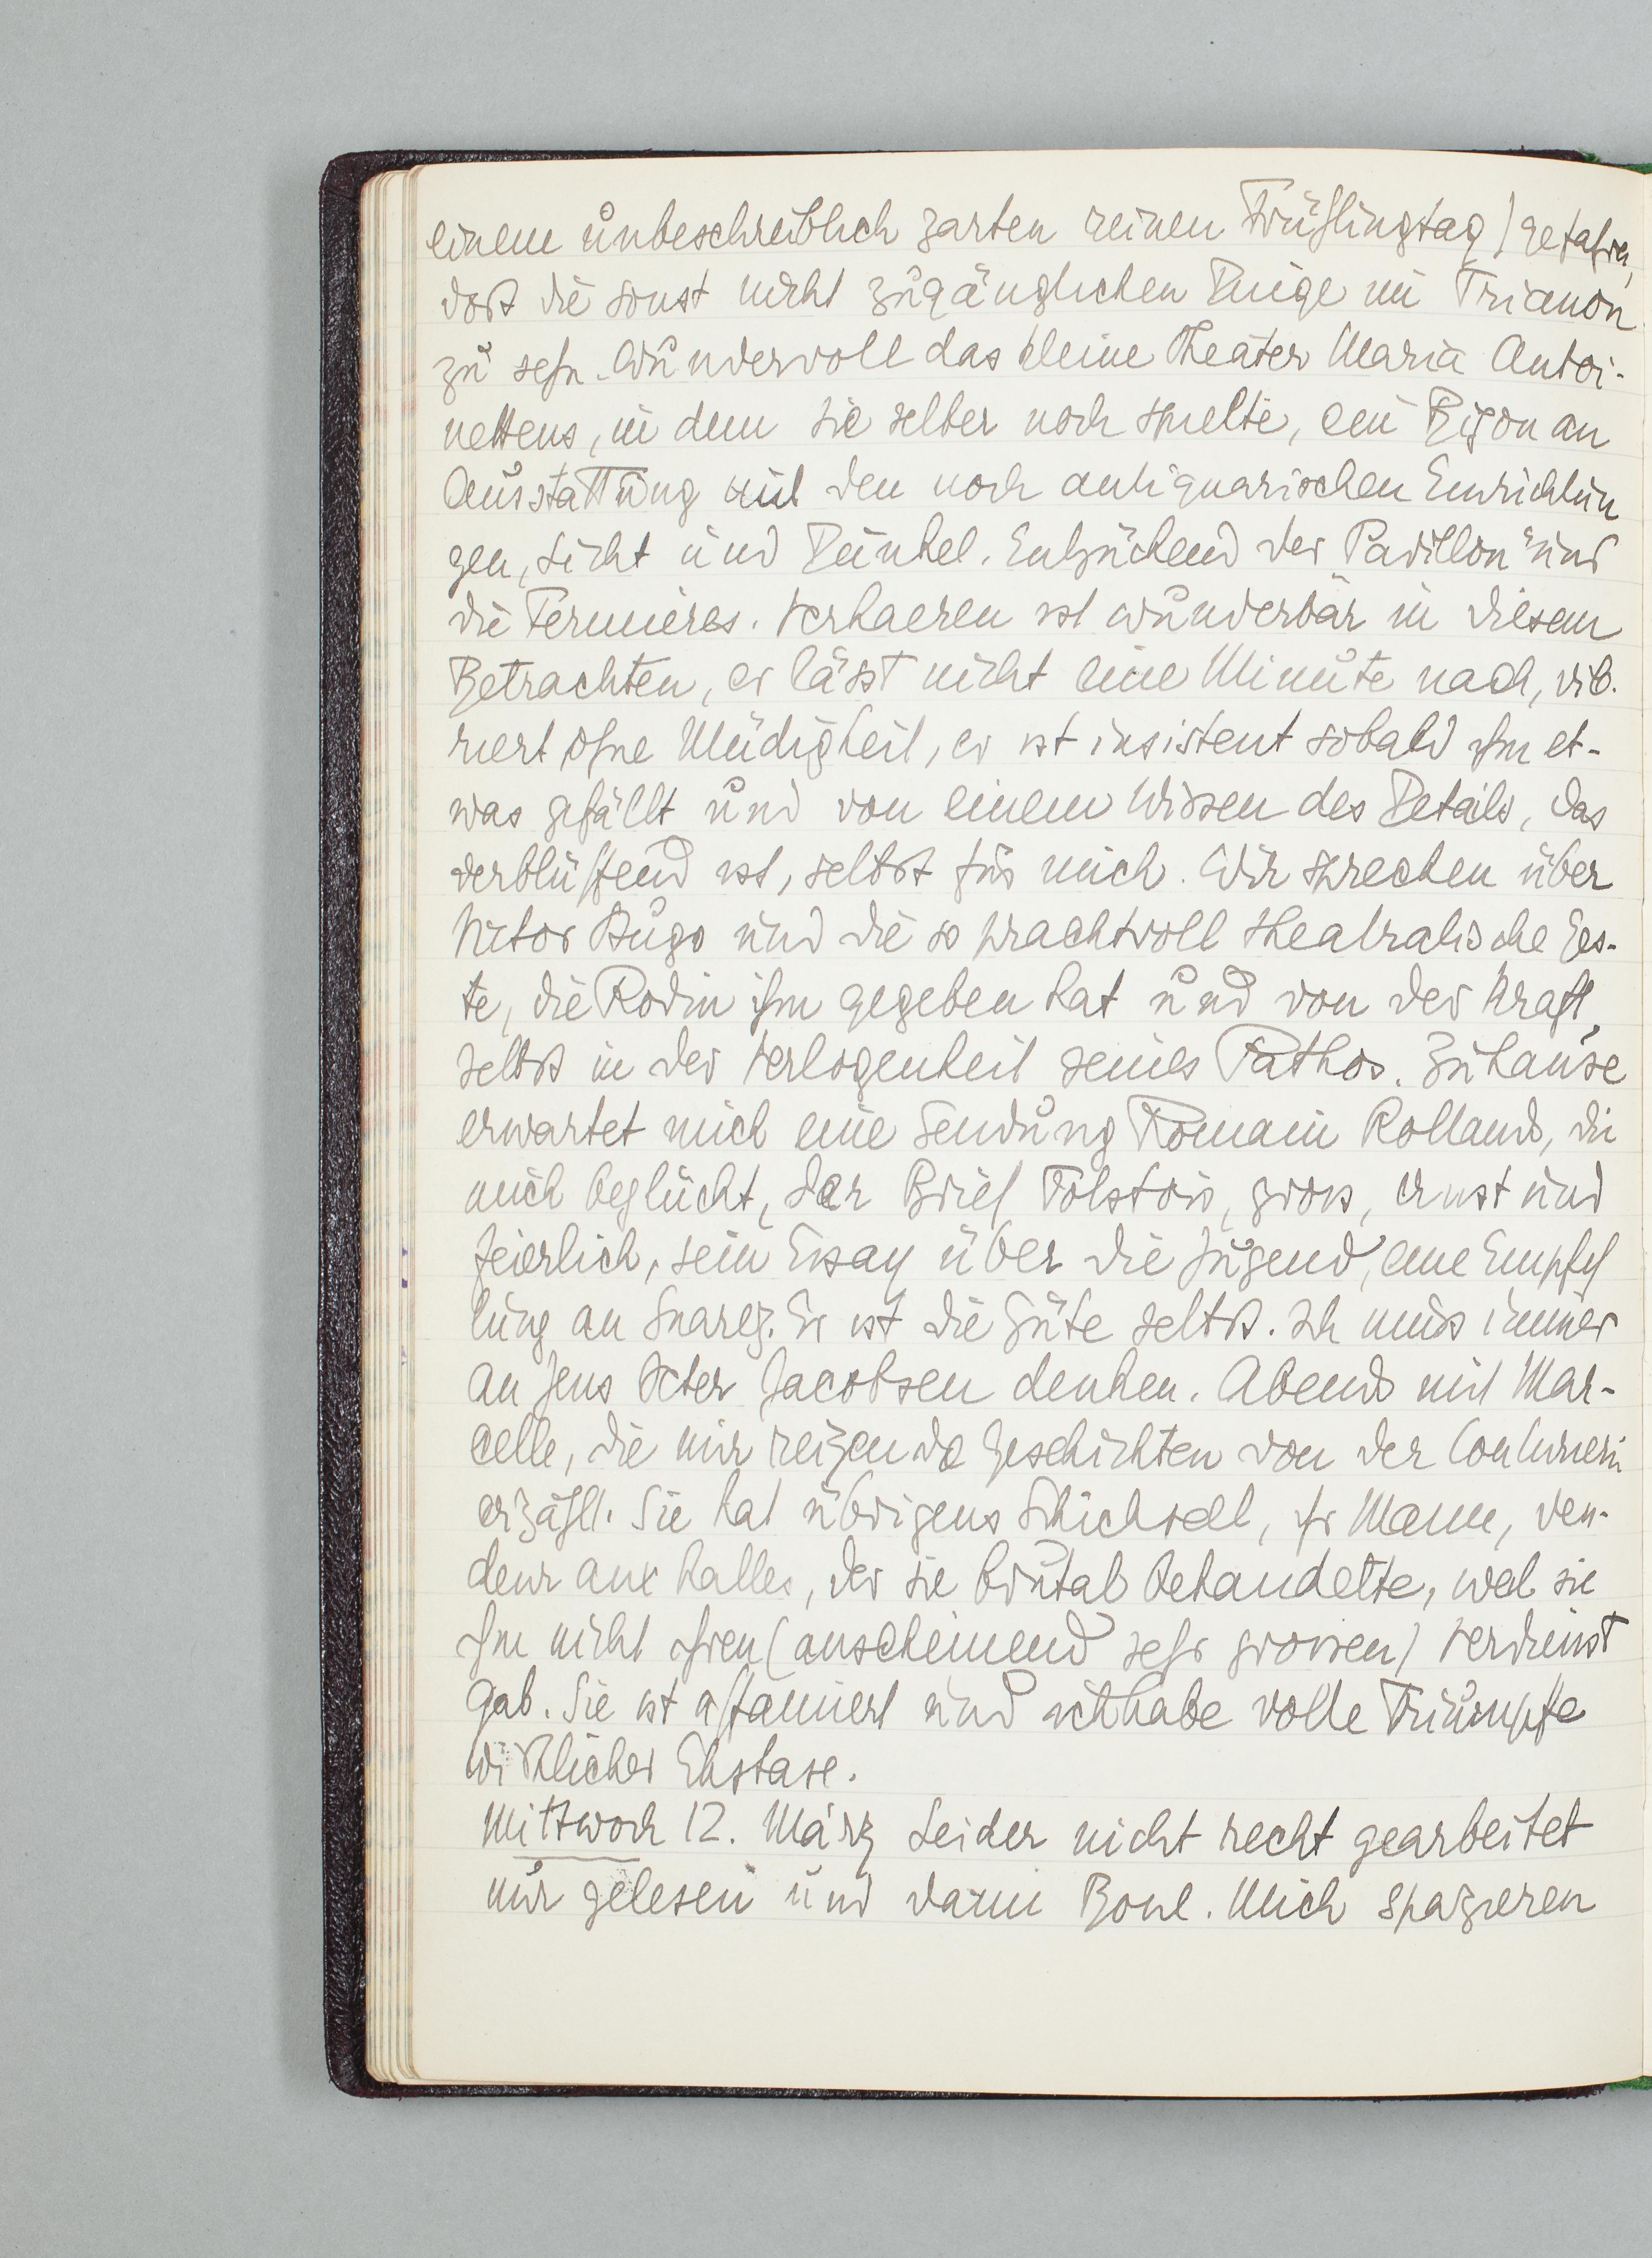 einem unbeschreiblich zarten reinen Frühlingstag) gefahren,
dort die sonst nicht zugänglichen Dinge in Trianon
zu sehn. Wundervoll das kleine Theater Maria Antoi-
nettens, in dem sie selber noch spielte, ein Bijou an
Ausstattung mit den noch antiquarischen Einrichtun
gen, Licht und Dunkel. Entzückend der Pavillon und
die Fermieres. Verhaeren ist wunderbar in diesem
Betrachten, er lässt nicht eine Minute nach, vib-
riert ohne Müdigkeit, er ist insistent sobald ihm et-
was gefällt und von einem Wissen des Details, das
verblüffend ist, selbst für mich. Wir sprechen über
Victor Hugo und die so prachtvoll theatralische Ges-
te, die Rodin ihm gegeben hat und von der Kraft,
selbst in der Verlogenheit seines Pathos. Zuhause
erwartet mich eine Sendung Romain Rollands, die
mich beglückt, der Brief Tolstois, gross, ernst und
feierlich, sein Essay über die Jugend, eine Empfeh
lung an Suarez. Er ist die Güte selbst. Ich muss immer
an Jens Peter Jacobsen denken. Abends mit Mar-
celle, die mir reizende Geschichten von der
erzählt. Sie hat übrigens Schicksal, ihr Mann, ven-
deur aux halles, der sie brutal behandelte, weil sie
ihm nicht ihren (anscheinend sehr grossen) Verdienst
gab. Sie ist affamiert und ich habe volle Triumpfe
wirklicher Ekstase.
Mittwoch 12. März Leider nicht recht gearbeitet
nur gelesen und dann Mich spazieren